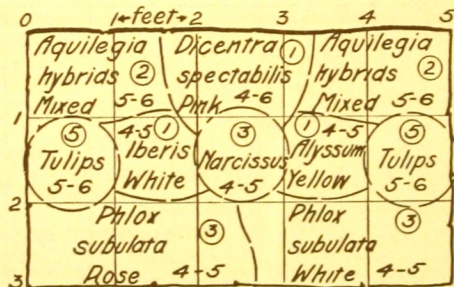 0 1 ←feet→ 2 3 4 5
Aquilegia
hybrids ②
Mixed 5-6
Dicentra ①
spectabilis
Pink 4-6
Aquilegia
hybrids ②
Mixed 5-6
1
⑤
Tulips
5-6
4-5 ①
Iberis
White
③
Narcissus
4-5
① 4-5
Alyssum
Yellow
⑤
Tulips
5-6
2
Phlox
subulata ③
Rose 4-5
Phlox ③
subulata
White 4-5
3